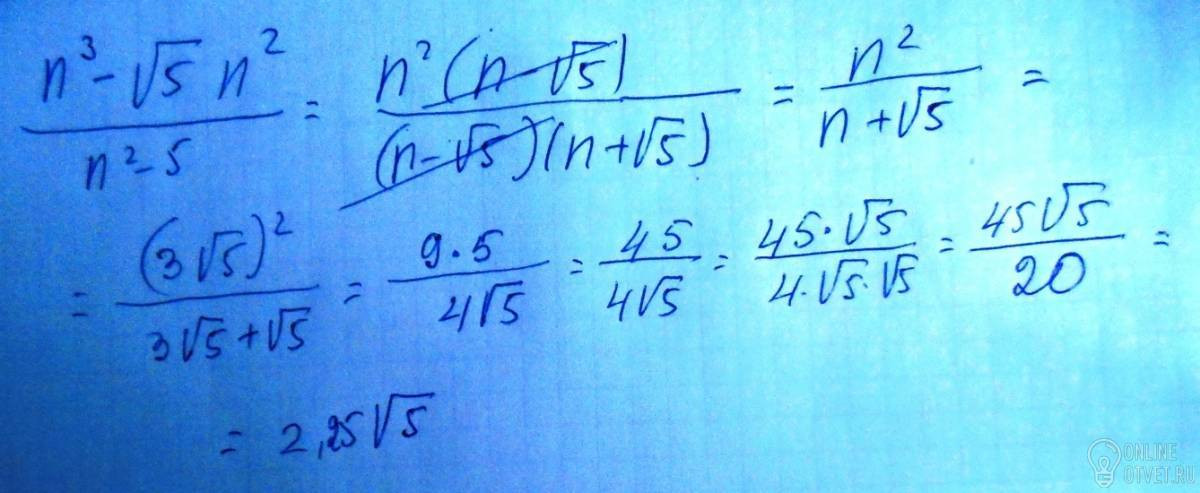 (n³ - √5 n²) / (n² - 5) = n² (n - √5) / ((n - √5)(n + √5)) = n² / (n + √5) =
= (3√5)² / (3√5 + √5) = 9·5 / 4√5 = 45 / 4√5 = 45·√5 / 4·√5·√5 = 45√5 / 20 =
= 2,25√5
ONLINE
OTVET.RU